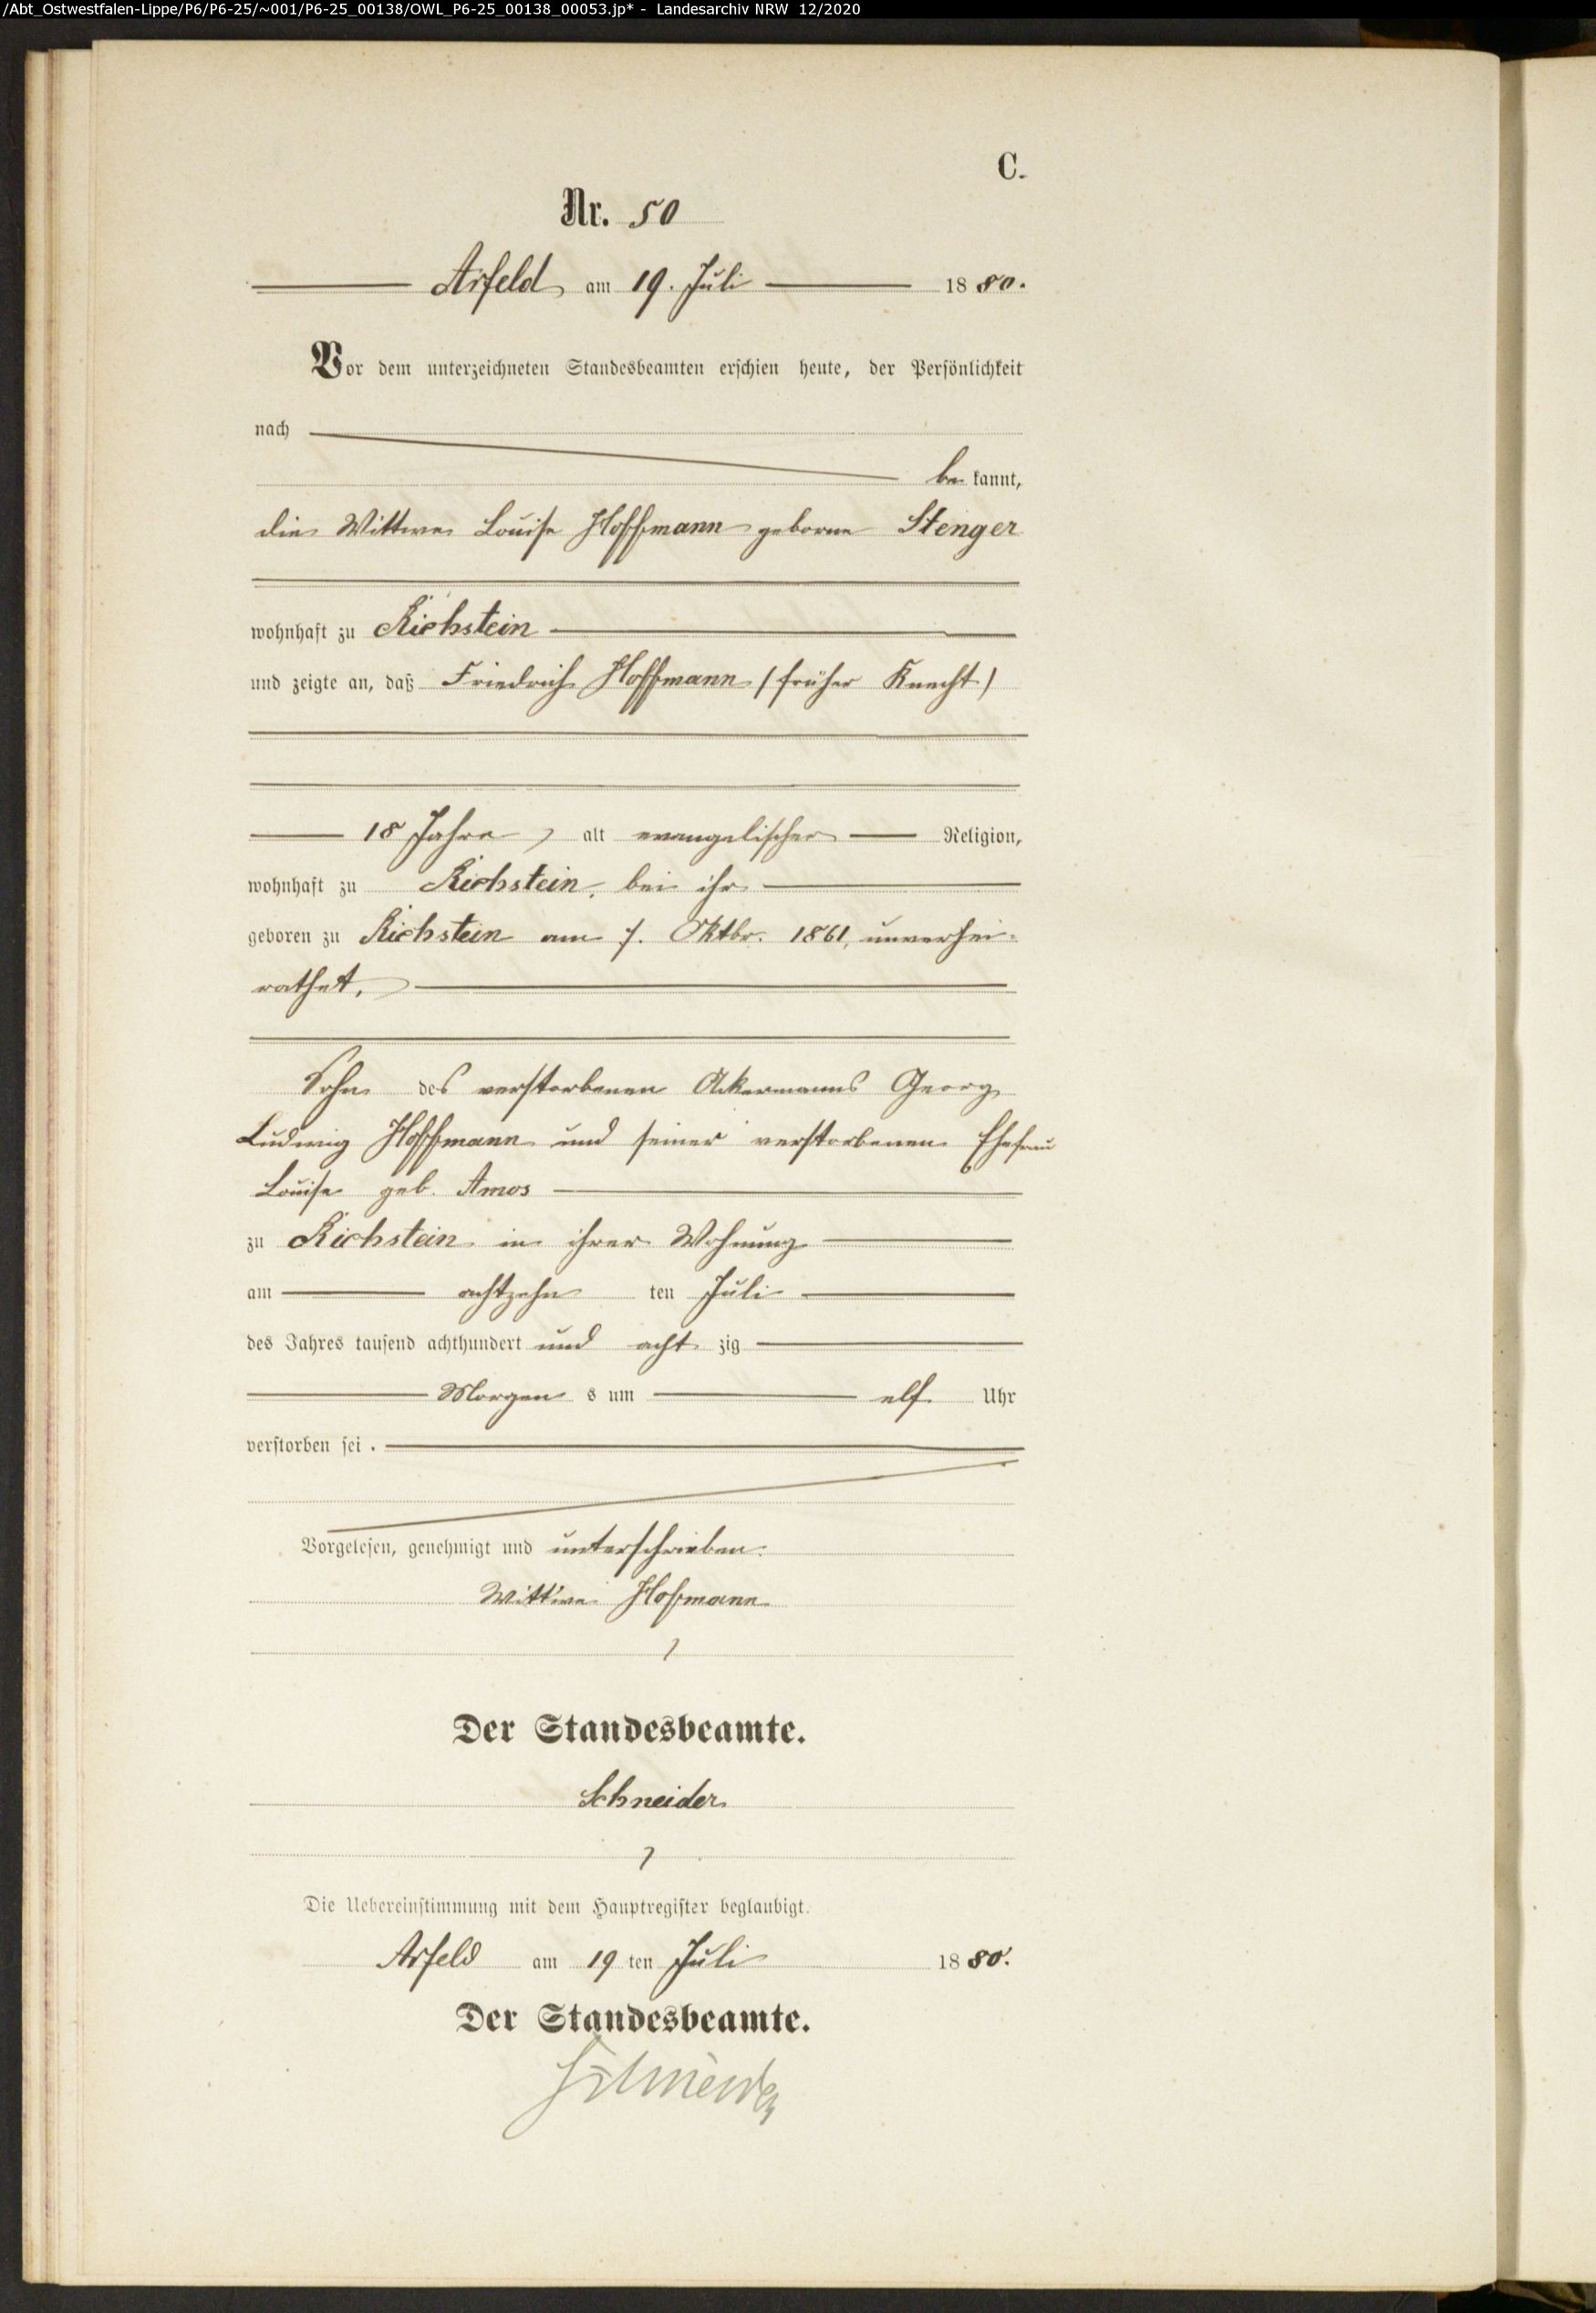 /Abt_Ostwestfalen-Lippe/P6/P6-25/~001/P6-25_00138/OWL_P6-25_00138_00053.jp* - Landesarchiv NRW 12/2020
C.
Nr. 50
Arfeld am 19. Juli 1880.
Vor dem unterzeichneten Standesbeamten erschien heute, der Persönlichkeit
nach
bekannt,
die Wittwe Louise Hoffmann geborne Stenger
wohnhaft zu Richstein
und zeigte an, daß Friedrich Hoffmann (früher Knecht)
18 Jahre, alt evangelischer Religion,
wohnhaft zu Richstein, bei ihr
geboren zu Richstein am 7. Oktbr. 1861, unverhei-
rathet,
Sohn des verstorbenen Ackermanns Georg
Ludwig Hoffmann und seiner verstorbenen Ehefrau
Louise geb. Amos
zu Richstein in ihrer Wohnung
am achtzehn ten Juli
des Jahres tausend achthundert und achtzig
Morgens um elf Uhr
verstorben sei.
Vorgelesen, genehmigt und unterschrieben.
Wittwe Hoffmann
Der Standesbeamte.
Schneider
Die Uebereinstimmung mit dem Hauptregister beglaubigt.
Arfeld am 19 ten Juli 1880.
Der Standesbeamte.
Schneider